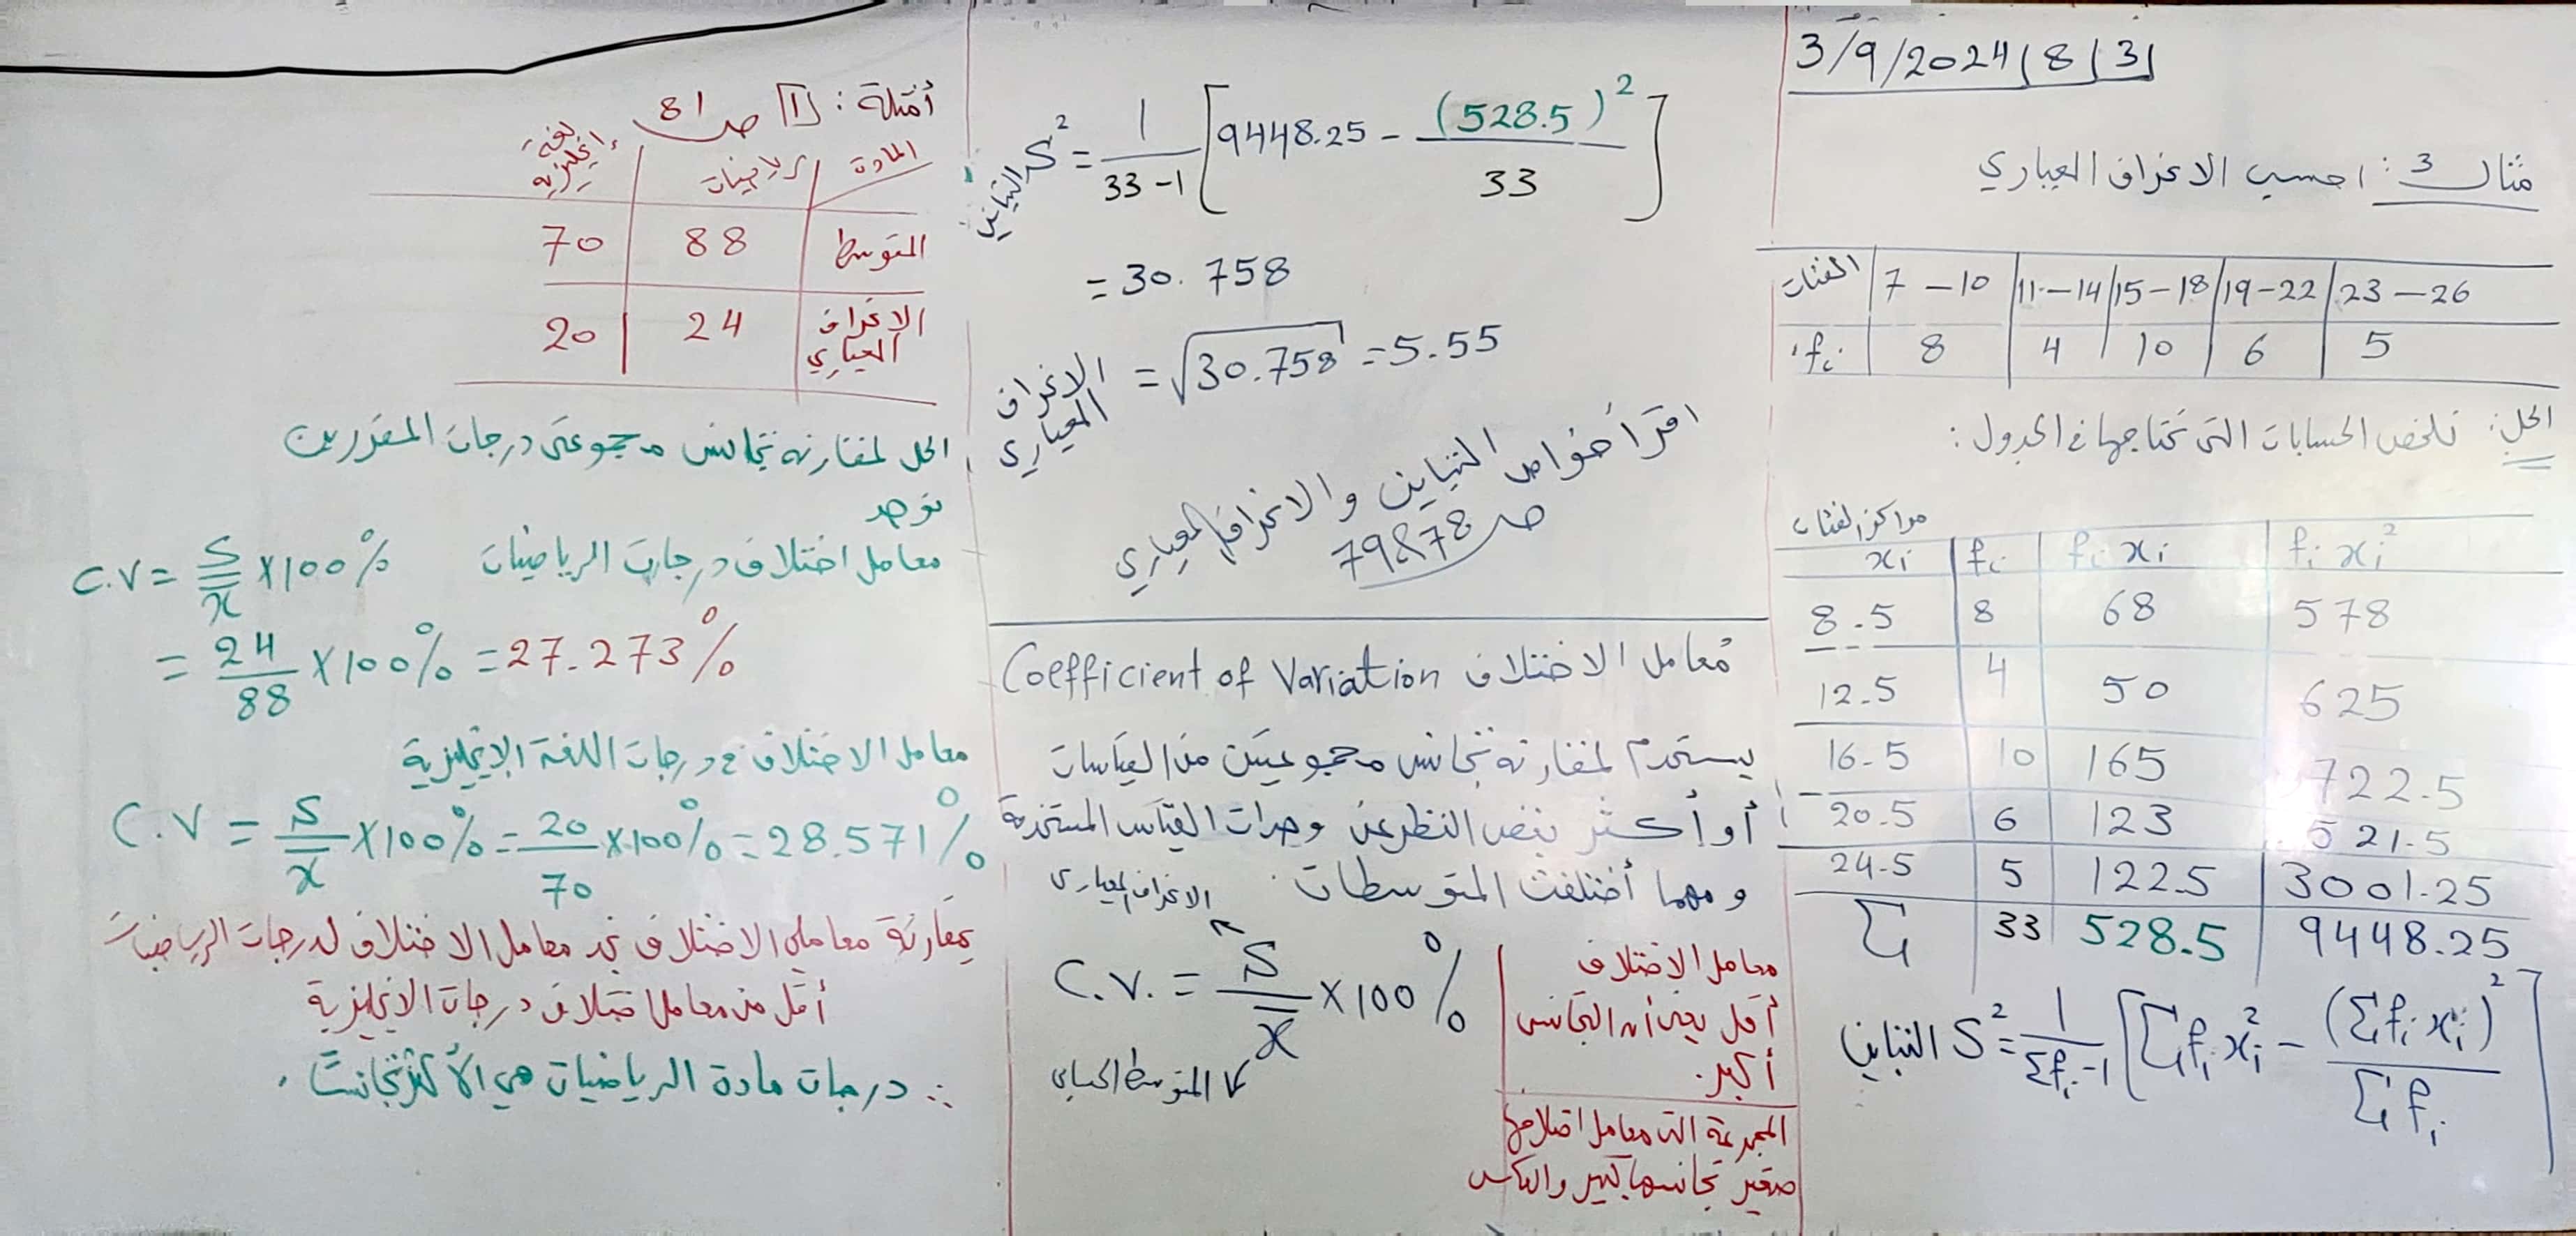 3/9/2024 | 8 | 3
مثال 3 : احسب الانحراف المعياري
الفئات | 7 – 10 | 11 – 14 | 15 – 18 | 19 – 22 | 23 – 26
fi | 8 | 4 | 10 | 6 | 5
الحل : نلخص الحسابات التي نحتاجها في الجدول :
مراكز الفئات
xi | fi | fi xi | fi xi²
8.5 | 8 | 68 | 578
12.5 | 4 | 50 | 625
16.5 | 10 | 165 | 2722.5
20.5 | 6 | 123 | 2521.5
24.5 | 5 | 122.5 | 3001.25
Σ | 33 | 528.5 | 9448.25
التباين S² = 1/(Σfi -1) [Σ fi xi² – (Σ fi xi)² / Σ fi]
التباين: S² = 1/(33 -1) [9448.25 – (528.5)² / 33]
= 30.758
الانحراف المعياري = √30.758 = 5.55
اقرأ خواص التباين والانحراف المعياري
ص 78 & 79
معامل الاختلاف Coefficient of Variation
يستخدم لمقارنة تجانس مجموعتين من القياسات
أو أكثر بغض النظر عن وحدات القياس المستخدمة
ومهما أختلفت المتوسطات .
الانحراف المعياري
C.V. = S/x̄ × 100 %
المتوسط الحسابي
معامل الاختلاف
أقل يعني أن التجانس
أكبر.
المجموعة التي معامل اختلافها
صغير تجانسها كبير والعكس
أمثلة : 1 ص 81
المادة | رياضيات | لغة إنجليزية
المتوسط | 88 | 70
الانحراف المعياري | 24 | 20
الحل لمقارنة تجانس مجموعتي درجات المقررين
نوجد
معامل اختلاف درجات الرياضيات C.V = S/x̄ × 100 %
= 24/88 × 100 % = 27.273 %
معامل الاختلاف في درجات اللغة الإنجليزية
C.V = S/x̄ × 100 % = 20/70 × 100 % = 28.571 %
بمقارنة معاملي الاختلاف نجد معامل الاختلاف لدرجات الرياضيات
أقل من معامل اختلاف درجات الانجليزية
∴ درجات مادة الرياضيات هي الأكثر تجانساً .